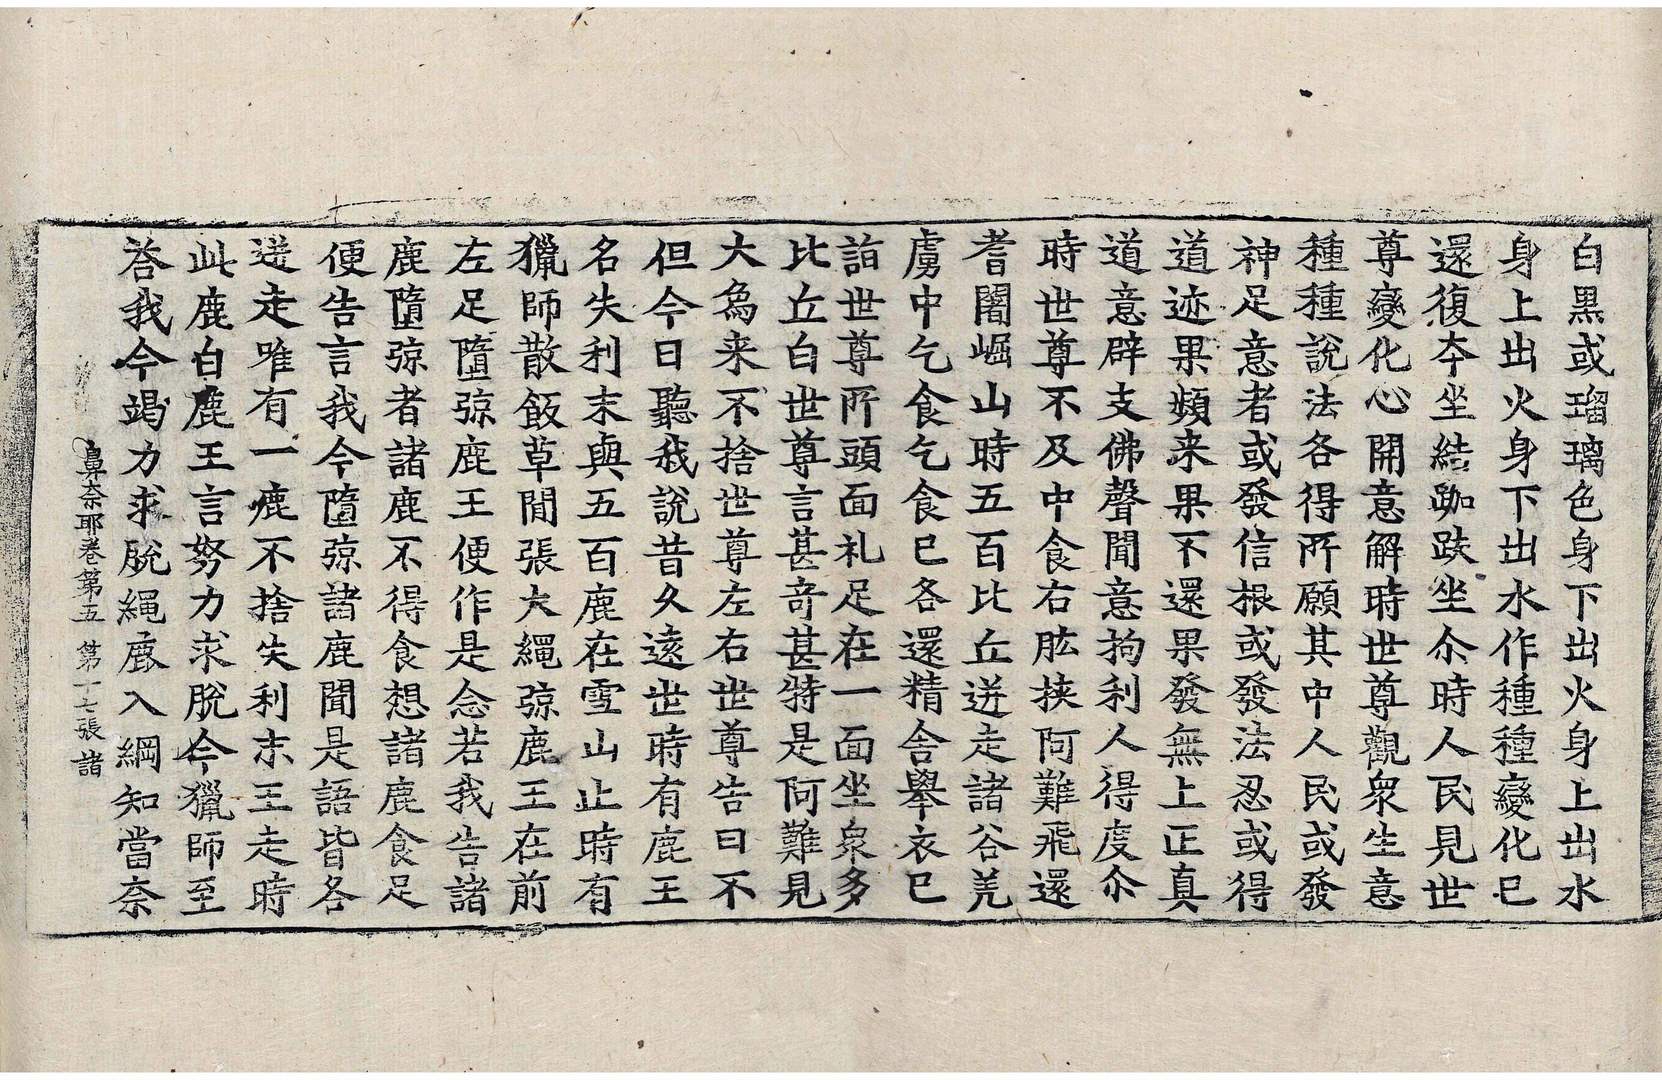 白黑或瑠璃色身下出火身上出水
身上出火身下出水作種種變化已
還復本坐結跏趺坐尒時人民見世
尊變化心開意解時世尊觀衆生意
種種說法各得所願其中人民或發
神足意者或發信根或發法忍或得
道迹果頻来果不還果發無上正真
道意辟支佛聲聞意拘利人得度尒
時世尊不及中食右肱挾阿難飛還
耆闍崛山時五百比丘迸走諸谷羌
虜中乞食乞食已各還精舍舉衣已
詣世尊所頭面礼足在一面坐衆多
比丘白世尊言甚奇甚特是阿難見
大為来不捨世尊左右世尊告曰不
但今日聽我說昔久遠世時有鹿王
名失利末與五百鹿在雪山止時有
獵師散飯草間張大繩弶鹿王在前
左足墮弶鹿王便作是念若我告諸
鹿墮弶者諸鹿不得食想諸鹿食足
便告言我今墮弶諸鹿聞是語皆各
迸走唯有一鹿不捨失利末王走時
此鹿白鹿王言努力求脫今獵師至
荅我今竭力求脫繩鹿入網知當奈
鼻奈耶卷第五 第十七張 諸